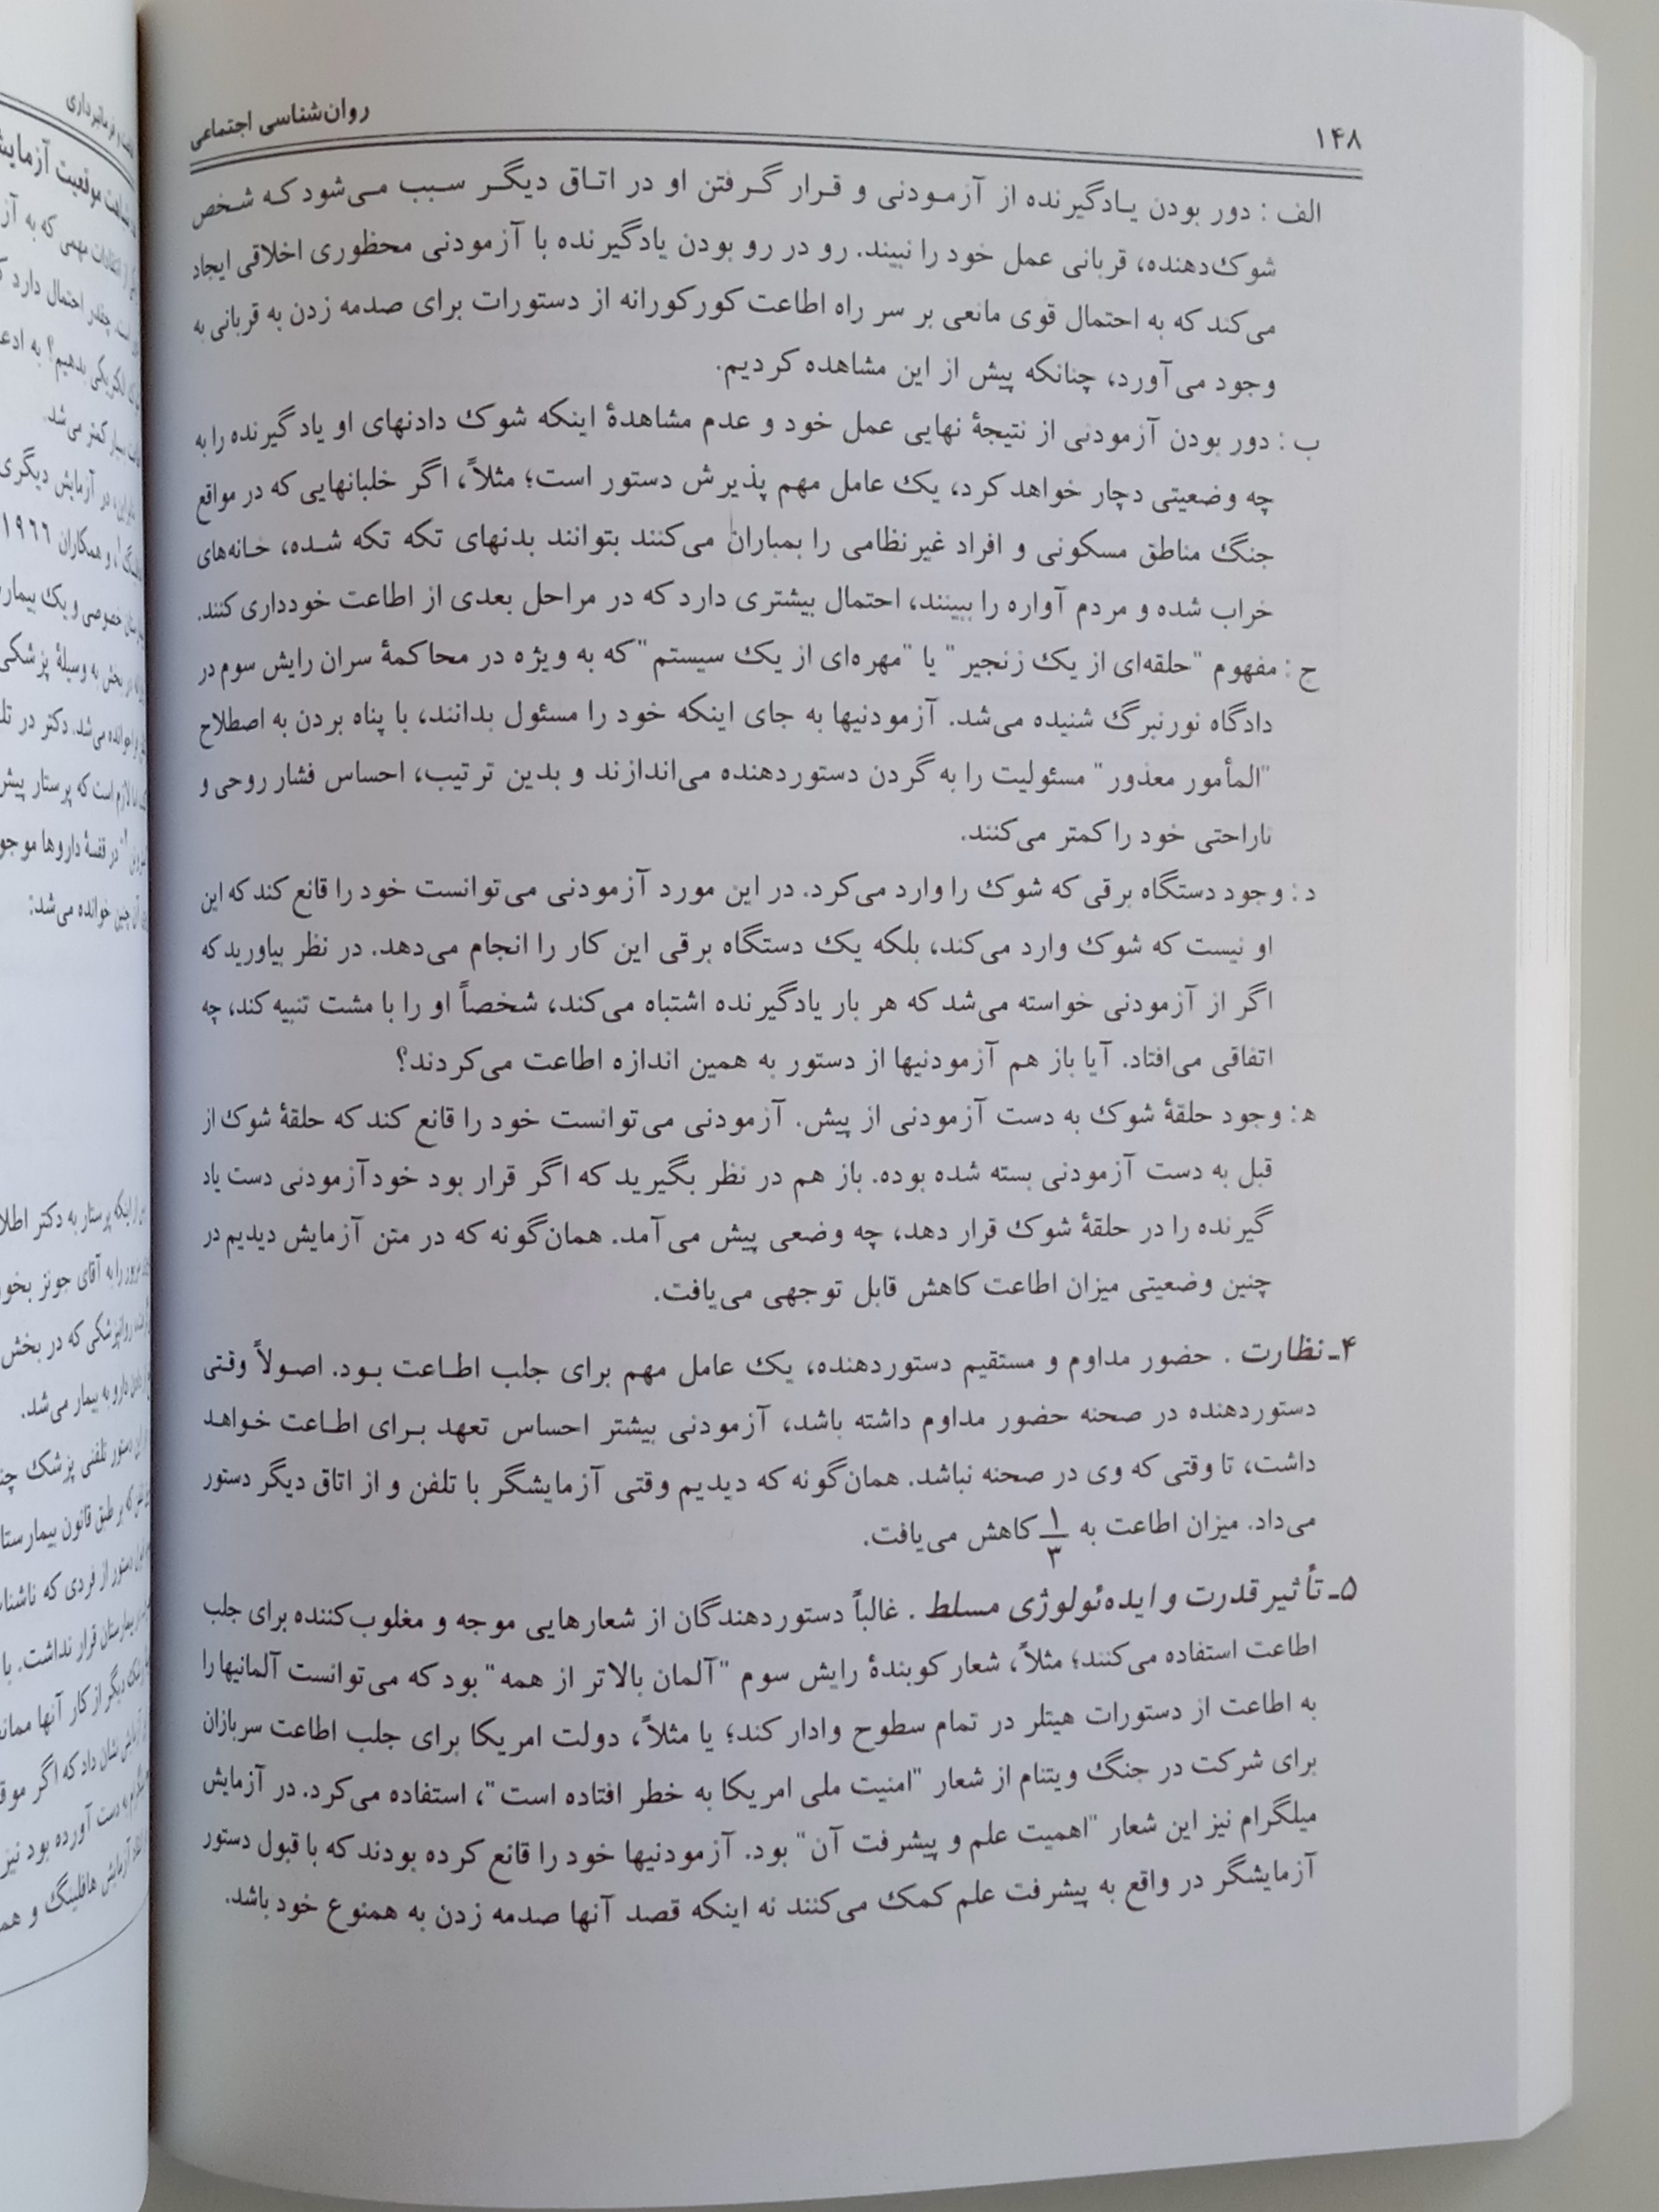 ۱۴۸
روان‌شناسی اجتماعی
الف : دور بودن یادگیرنده از آزمودنی و قرار گرفتن او در اتاق دیگر سبب می‌شود که شخص
شوک‌دهنده، قربانی عمل خود را نبیند. رو در رو بودن یادگیرنده با آزمودنی محظوری اخلاقی ایجاد
می‌کند که به احتمال قوی مانعی بر سر راه اطاعت کورکورانه از دستورات برای صدمه زدن به قربانی به
وجود می‌آورد، چنانکه پیش از این مشاهده کردیم.
ب : دور بودن آزمودنی از نتیجهٔ نهایی عمل خود و عدم مشاهدهٔ اینکه شوک دادنهای او یادگیرنده را به
چه وضعیتی دچار خواهد کرد، یک عامل مهم پذیرش دستور است؛ مثلاً، اگر خلبانهایی که در مواقع
جنگ مناطق مسکونی و افراد غیرنظامی را بمباران می‌کنند بتوانند بدنهای تکه تکه شده، خانه‌های
خراب شده و مردم آواره را ببینند، احتمال بیشتری دارد که در مراحل بعدی از اطاعت خودداری کنند.
ج : مفهوم "حلقه‌ای از یک زنجیر" یا "مهره‌ای از یک سیستم" که به ویژه در محاکمهٔ سران رایش سوم در
دادگاه نورنبرگ شنیده می‌شد. آزمودنیها به جای اینکه خود را مسئول بدانند، با پناه بردن به اصطلاح
"المأمور معذور" مسئولیت را به گردن دستوردهنده می‌اندازند و بدین ترتیب، احساس فشار روحی و
ناراحتی خود را کمتر می‌کنند.
د : وجود دستگاه برقی که شوک را وارد می‌کرد. در این مورد آزمودنی می‌توانست خود را قانع کند که این
او نیست که شوک وارد می‌کند، بلکه یک دستگاه برقی این کار را انجام می‌دهد. در نظر بیاورید که
اگر از آزمودنی خواسته می‌شد که هر بار یادگیرنده اشتباه می‌کند، شخصاً او را با مشت تنبیه کند، چه
اتفاقی می‌افتاد. آیا باز هم آزمودنیها از دستور به همین اندازه اطاعت می‌کردند؟
ه : وجود حلقهٔ شوک به دست آزمودنی از پیش. آزمودنی می‌توانست خود را قانع کند که حلقهٔ شوک از
قبل به دست آزمودنی بسته شده بوده. باز هم در نظر بگیرید که اگر قرار بود خود آزمودنی دست یاد
گیرنده را در حلقهٔ شوک قرار دهد، چه وضعی پیش می‌آمد. همان‌گونه که در متن آزمایش دیدیم در
چنین وضعیتی میزان اطاعت کاهش قابل توجهی می‌یافت.
۴ـ نظارت . حضور مداوم و مستقیم دستوردهنده، یک عامل مهم برای جلب اطاعت بود. اصولاً وقتی
دستوردهنده در صحنه حضور مداوم داشته باشد، آزمودنی بیشتر احساس تعهد برای اطاعت خواهد
داشت، تا وقتی که وی در صحنه نباشد. همان‌گونه که دیدیم وقتی آزمایشگر با تلفن و از اتاق دیگر دستور
می‌داد. میزان اطاعت به ۱/۳ کاهش می‌یافت.
۵ـ تأثیر قدرت و ایده‌ئولوژی مسلط . غالباً دستوردهندگان از شعارهایی موجه و مغلوب‌کننده برای جلب
اطاعت استفاده می‌کنند؛ مثلاً، شعار کوبندهٔ رایش سوم "آلمان بالاتر از همه" بود که می‌توانست آلمانیها را
به اطاعت از دستورات هیتلر در تمام سطوح وادار کند؛ یا مثلاً، دولت امریکا برای جلب اطاعت سربازان
برای شرکت در جنگ ویتنام از شعار "امنیت ملی امریکا به خطر افتاده است"، استفاده می‌کرد. در آزمایش
میلگرام نیز این شعار "اهمیت علم و پیشرفت آن" بود. آزمودنیها خود را قانع کرده بودند که با قبول دستور
آزمایشگر در واقع به پیشرفت علم کمک می‌کنند نه اینکه قصد آنها صدمه زدن به همنوع خود باشد.